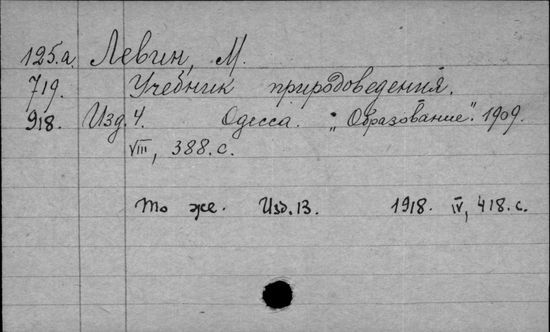 125.a. Левин, М.
719. Учебник природоведения.
918. Изд. 4. Одесса. "Образование". 1909.
VIII, 388.с.
То же. Изд. 13. 1918. IV, 418.с.